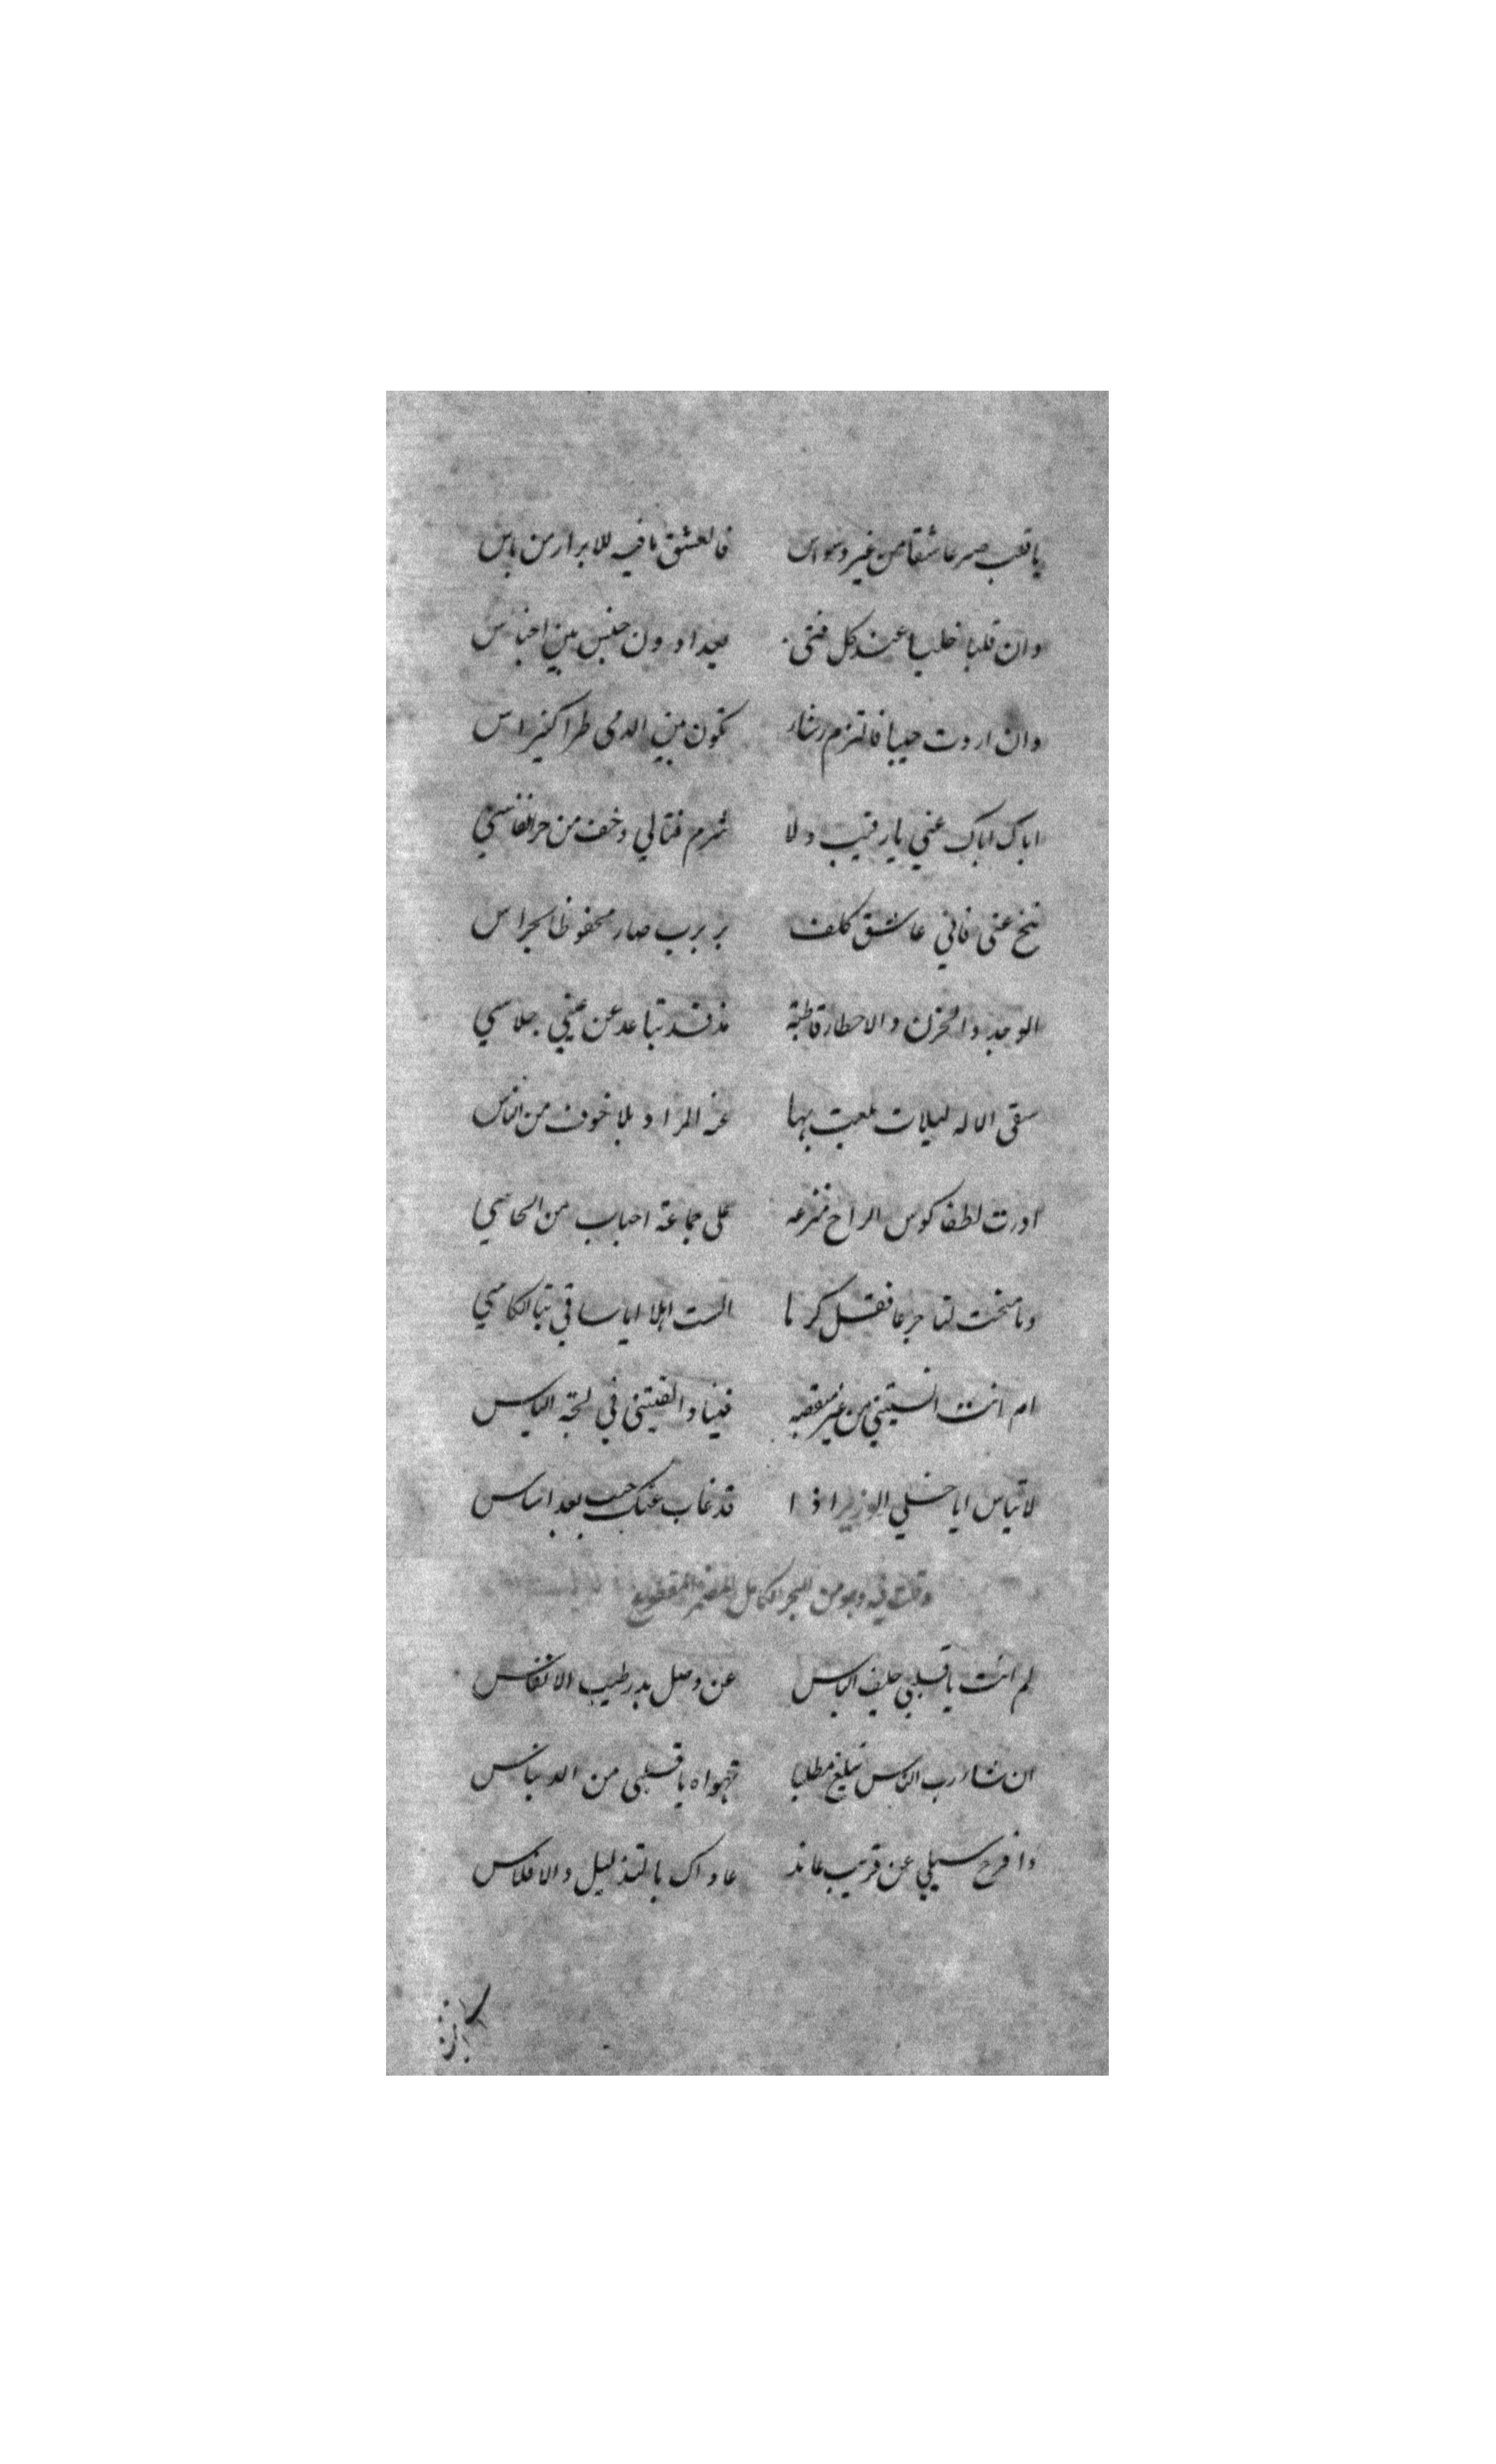 يا قلب صر عاشقا من غير وسواس فالعشق ما فيه للابرار من باس
وان قلبا خليا عند كل فتى يعد اد ون جنس بين اجناس
وان اردت حبيبا فالتزم رشاء تكون بين الدمى طرا كنبراس
اياك اياك عني يا رقيب ولا ترم قتالي وخف من حر انفاسي
تنح عني فاني عاشق كلف بربرب صار محفوظا بحراس
الوجد والحزن والاحطار قاطبة مذ قد تباعد عن عيني جلاسي
سقى الاله ليلات بلغت بها عنه المراد بلا خوف من الناس
ادرت لطفا كوس الراح مترعه على جماعة احباب من الحاسي
وما منحت لنا جرعا فقل كرما الست اهلا ايا ساقي بتا الكاسي
ام انت انسيتني من غير منقصه فينا والقيتني في لجة الياس
لا تياس ايا خلي الوزير اذا قد غاب عنك حبيب بعد ايناس
وقلت فيه وهو من البحر الكامل المضمر المقطوع
لم انت يا قلبي حليف الياس عن وصل بدر طيب الانفاس
ان شاء رب الناس تبلغ مطلبا تهواه يا قلبي من الديانس
وافرح سيلي عن قريب عاند عاداك بالتذليل والافلاس